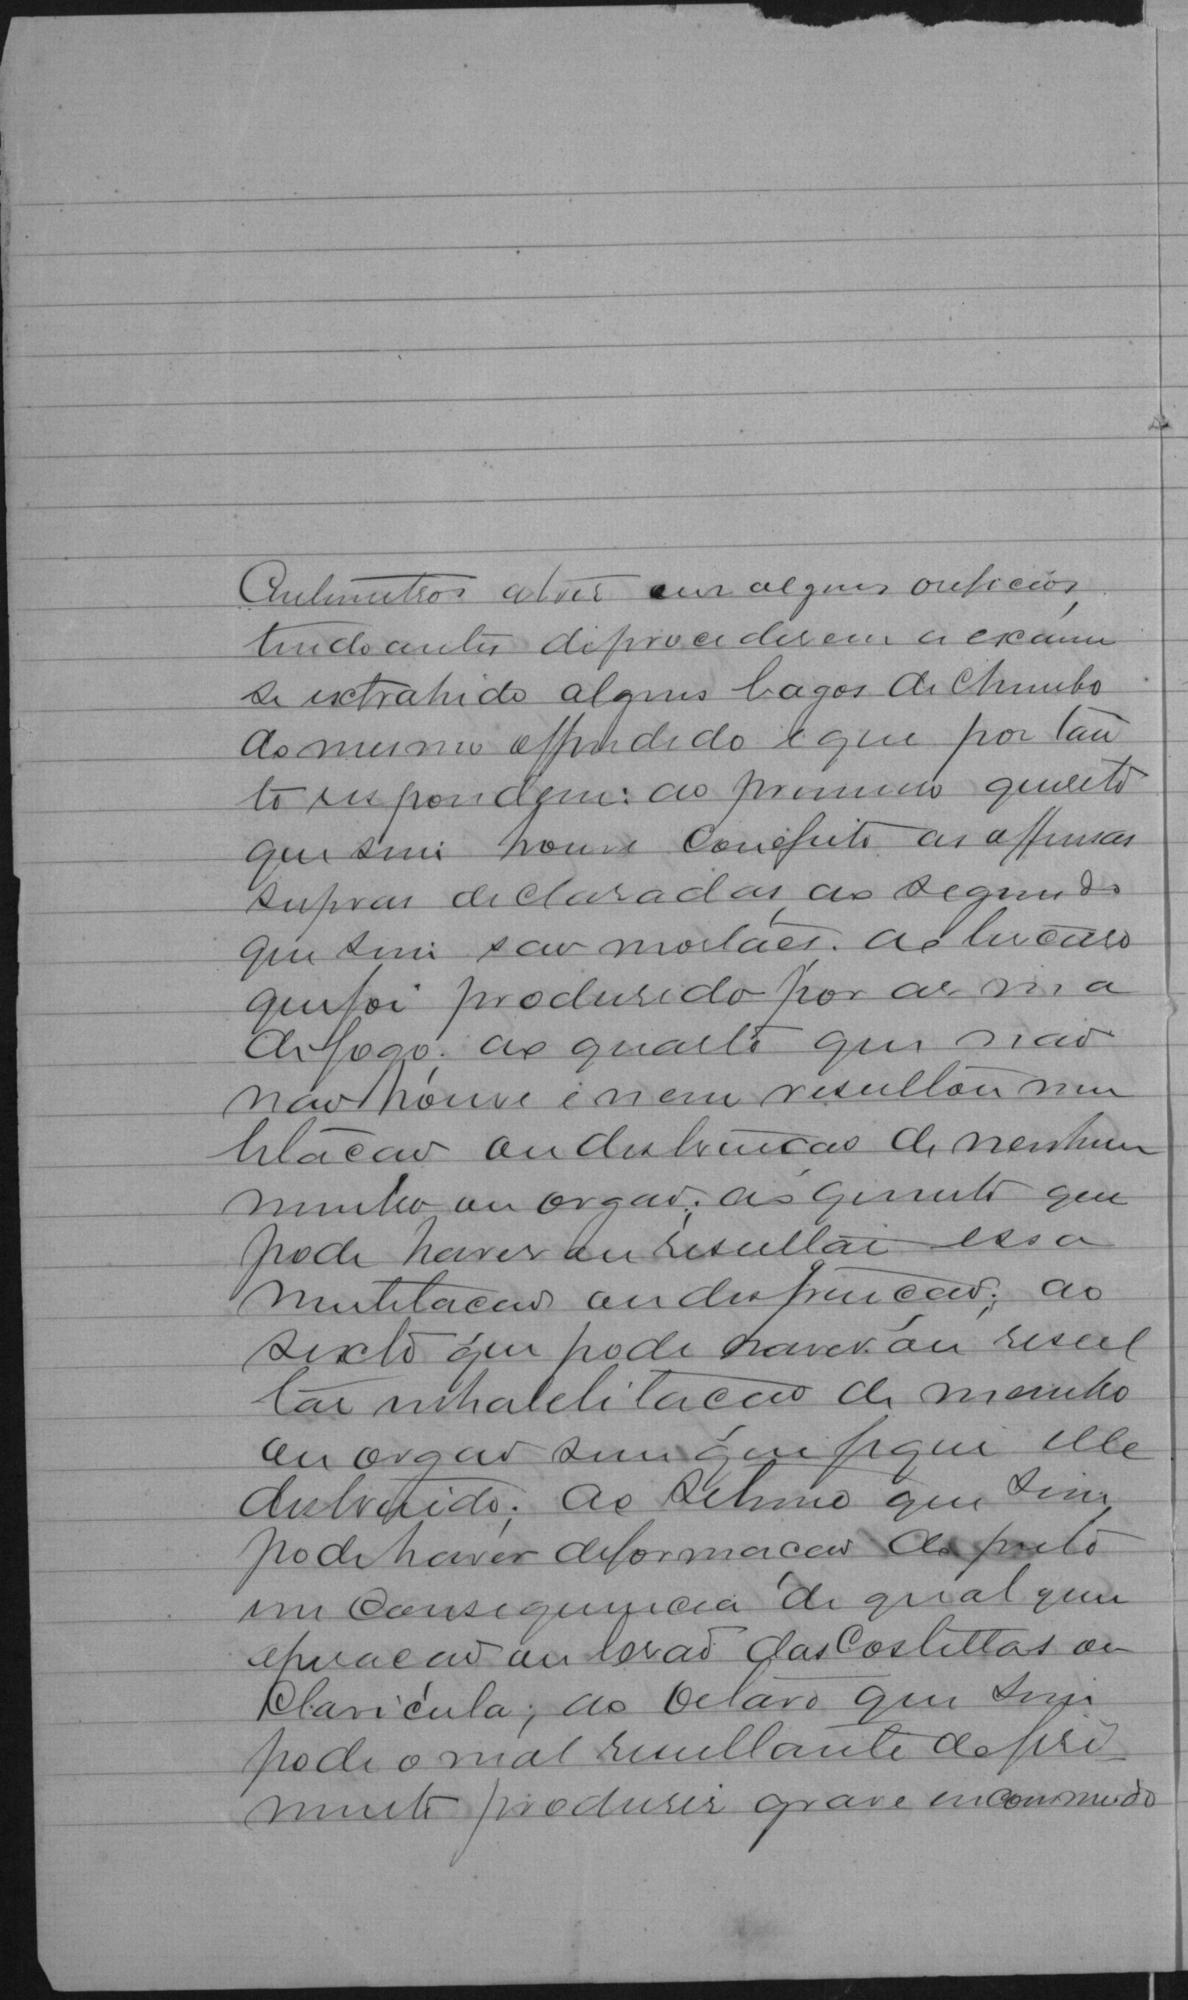 Centimetros talvez em alguns orificios,
tendo antes de procederem a exame
se extrahido alguns bagos de chumbo
do mesmo offendido e que por tan
to respondem: ao primeiro quesito
que sim houve com efeito as offensas
supras declaradas, ao segundo
que sim sao mortaes. ao terceiro
que foi produsido por arma
de fogo; ao quarto que não
não houve e nem resultou mu
tilacao ou destruicao de nenhum
membro ou orgao; ao quinto que
pode haver ou resultar essa
mutilacao ou destruicao; ao
sexto que pode haver ou resul
tar inhabilitacao de membro
ou orgao sem que fique elle
destruido; ao setimo que sim
pode haver deformacao do peito
em consequencia de qualquer
operacao ou lesao das Costellas ou
Clavicula; ao oitavo que sim
pode o mal resultante do feri
mento produsir grave incommodo